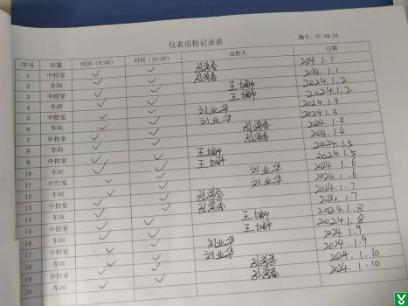 仪表巡检记录表
序号 位置 时间(8:00) 时间(16:00) 巡检人 日期
1 中控室 ✓ ✓ 2024.1.1
2 车间 ✓ ✓ 2024.1.1
3 中控室 ✓ ✓ 王 2024.1.2
4 车间 ✓ ✓ 王 2024.1.2
5 中控室 ✓ ✓ 刘业华 2024.1.3
6 车间 ✓ ✓ 刘业华 2024.1.3
7 中控室 ✓ ✓ 2024.1.4
8 车间 ✓ ✓ 2024.1.4
9 中控室 ✓ ✓ 王 2024.1.5
10 车间 ✓ ✓ 王 2024.1.5
11 中控室 ✓ ✓ 刘业华 2024.1.6
12 车间 ✓ ✓ 刘业华 2024.1.6
13 中控室 ✓ ✓ 2024.1.7
14 车间 ✓ ✓ 2024.1.7
15 中控室 ✓ ✓ 王 2024.1.8
16 车间 ✓ ✓ 王 2024.1.8
17 中控室 ✓ ✓ 刘业华 2024.1.9
18 车间 ✓ ✓ 刘业华 2024.1.9
19 中控室 ✓ ✓ 2024.1.10
20 车间 ✓ ✓ 2024.1.10